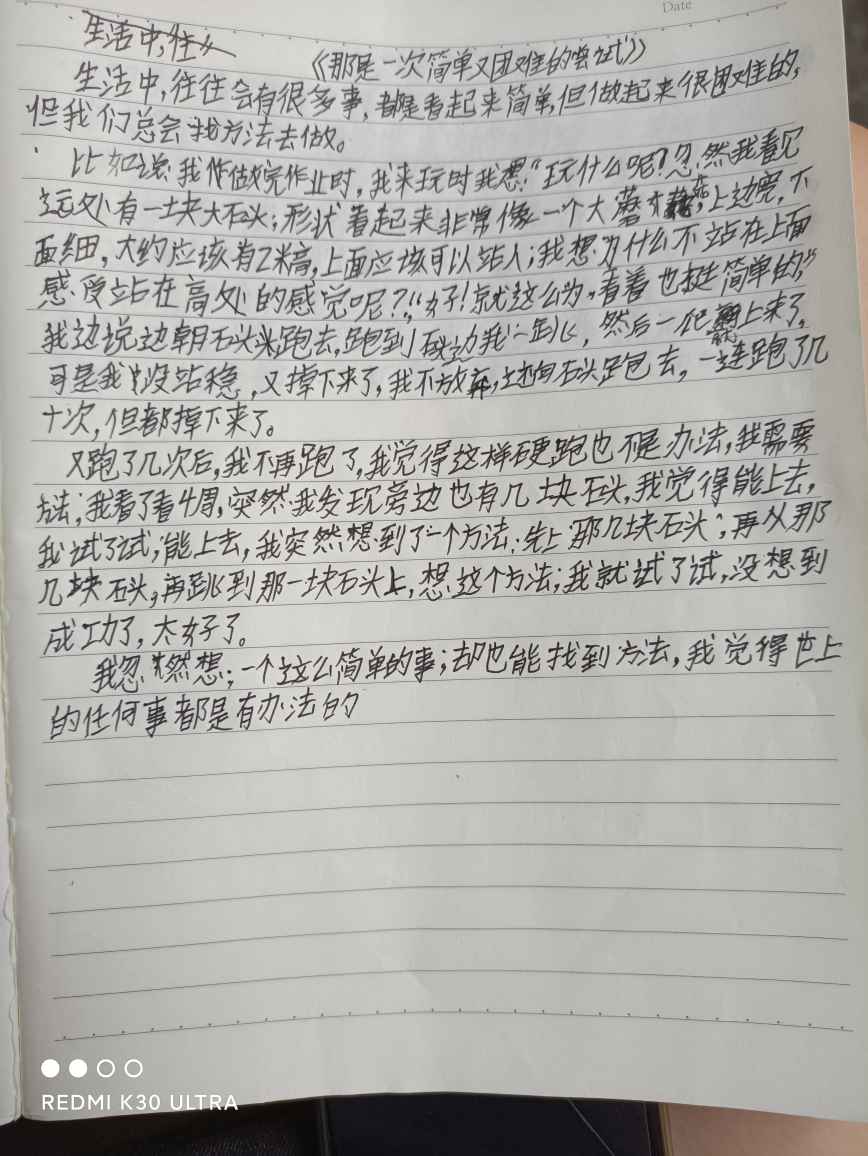 Date
生活中,往
《那是一次简单又困难的尝试》
生活中,往往会有很多事,都是看起来简单,但做起来很困难的,
但我们总会找方法去做。
比如说:我作做完作业时,我来玩时我想:“玩什么呢?忽然我看见
远处有一块大石头;形状看起来非常像一个大蘑菇,上边宽,下
面细,大约应该有2米高,上面应该可以站人;我想:为什么不站在上面
感受站在高处的感觉呢?”,“好!就这么为,看着也挺简单的,”
我边说边朝石头跑去,跑到石头边我一跳,然后一把翻上来了,
可是我没站稳,又掉下来了,我不放弃,边向石头跑去,一连跑了几
十次,但都掉下来了。
又跑了几次后,我不再跑了,我觉得这样硬跑也不是办法,我需要
方法;我看了看四周,突然我发现旁边也有几块石头,我觉得能上去,
我试了试,能上去,我突然想到了一个方法:先上那几块石头;再从那
几块石头,再跳到那一块石头上,想这个方法;我就试了试,没想到
成功了,太好了。
我忽然想;一个这么简单的事;却也能找到方法,我觉得世上
的任何事都是有办法的
REDMI K30 ULTRA